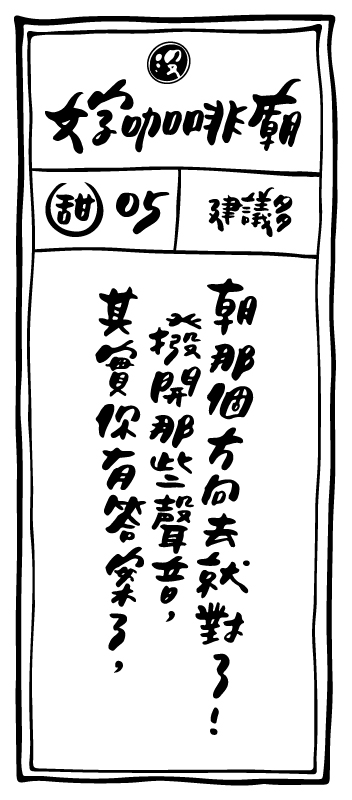 沒
好咖啡廟
甜 05
建議多
其實你有答案了，
撥開那些聲音，
朝那個方向去就對了！